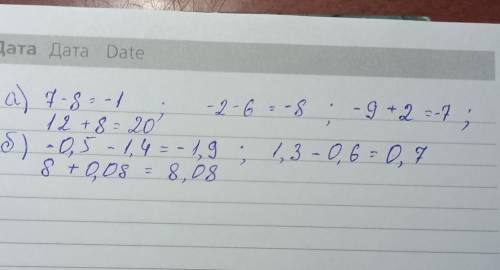 Дата Дата Date
а) 7-8=-1 ; -2-6=-8 ; -9+2=-7 ;
12+8=20
б) -0,5-1,4=-1,9 ; 1,3-0,6=0,7
8+0,08=8,08